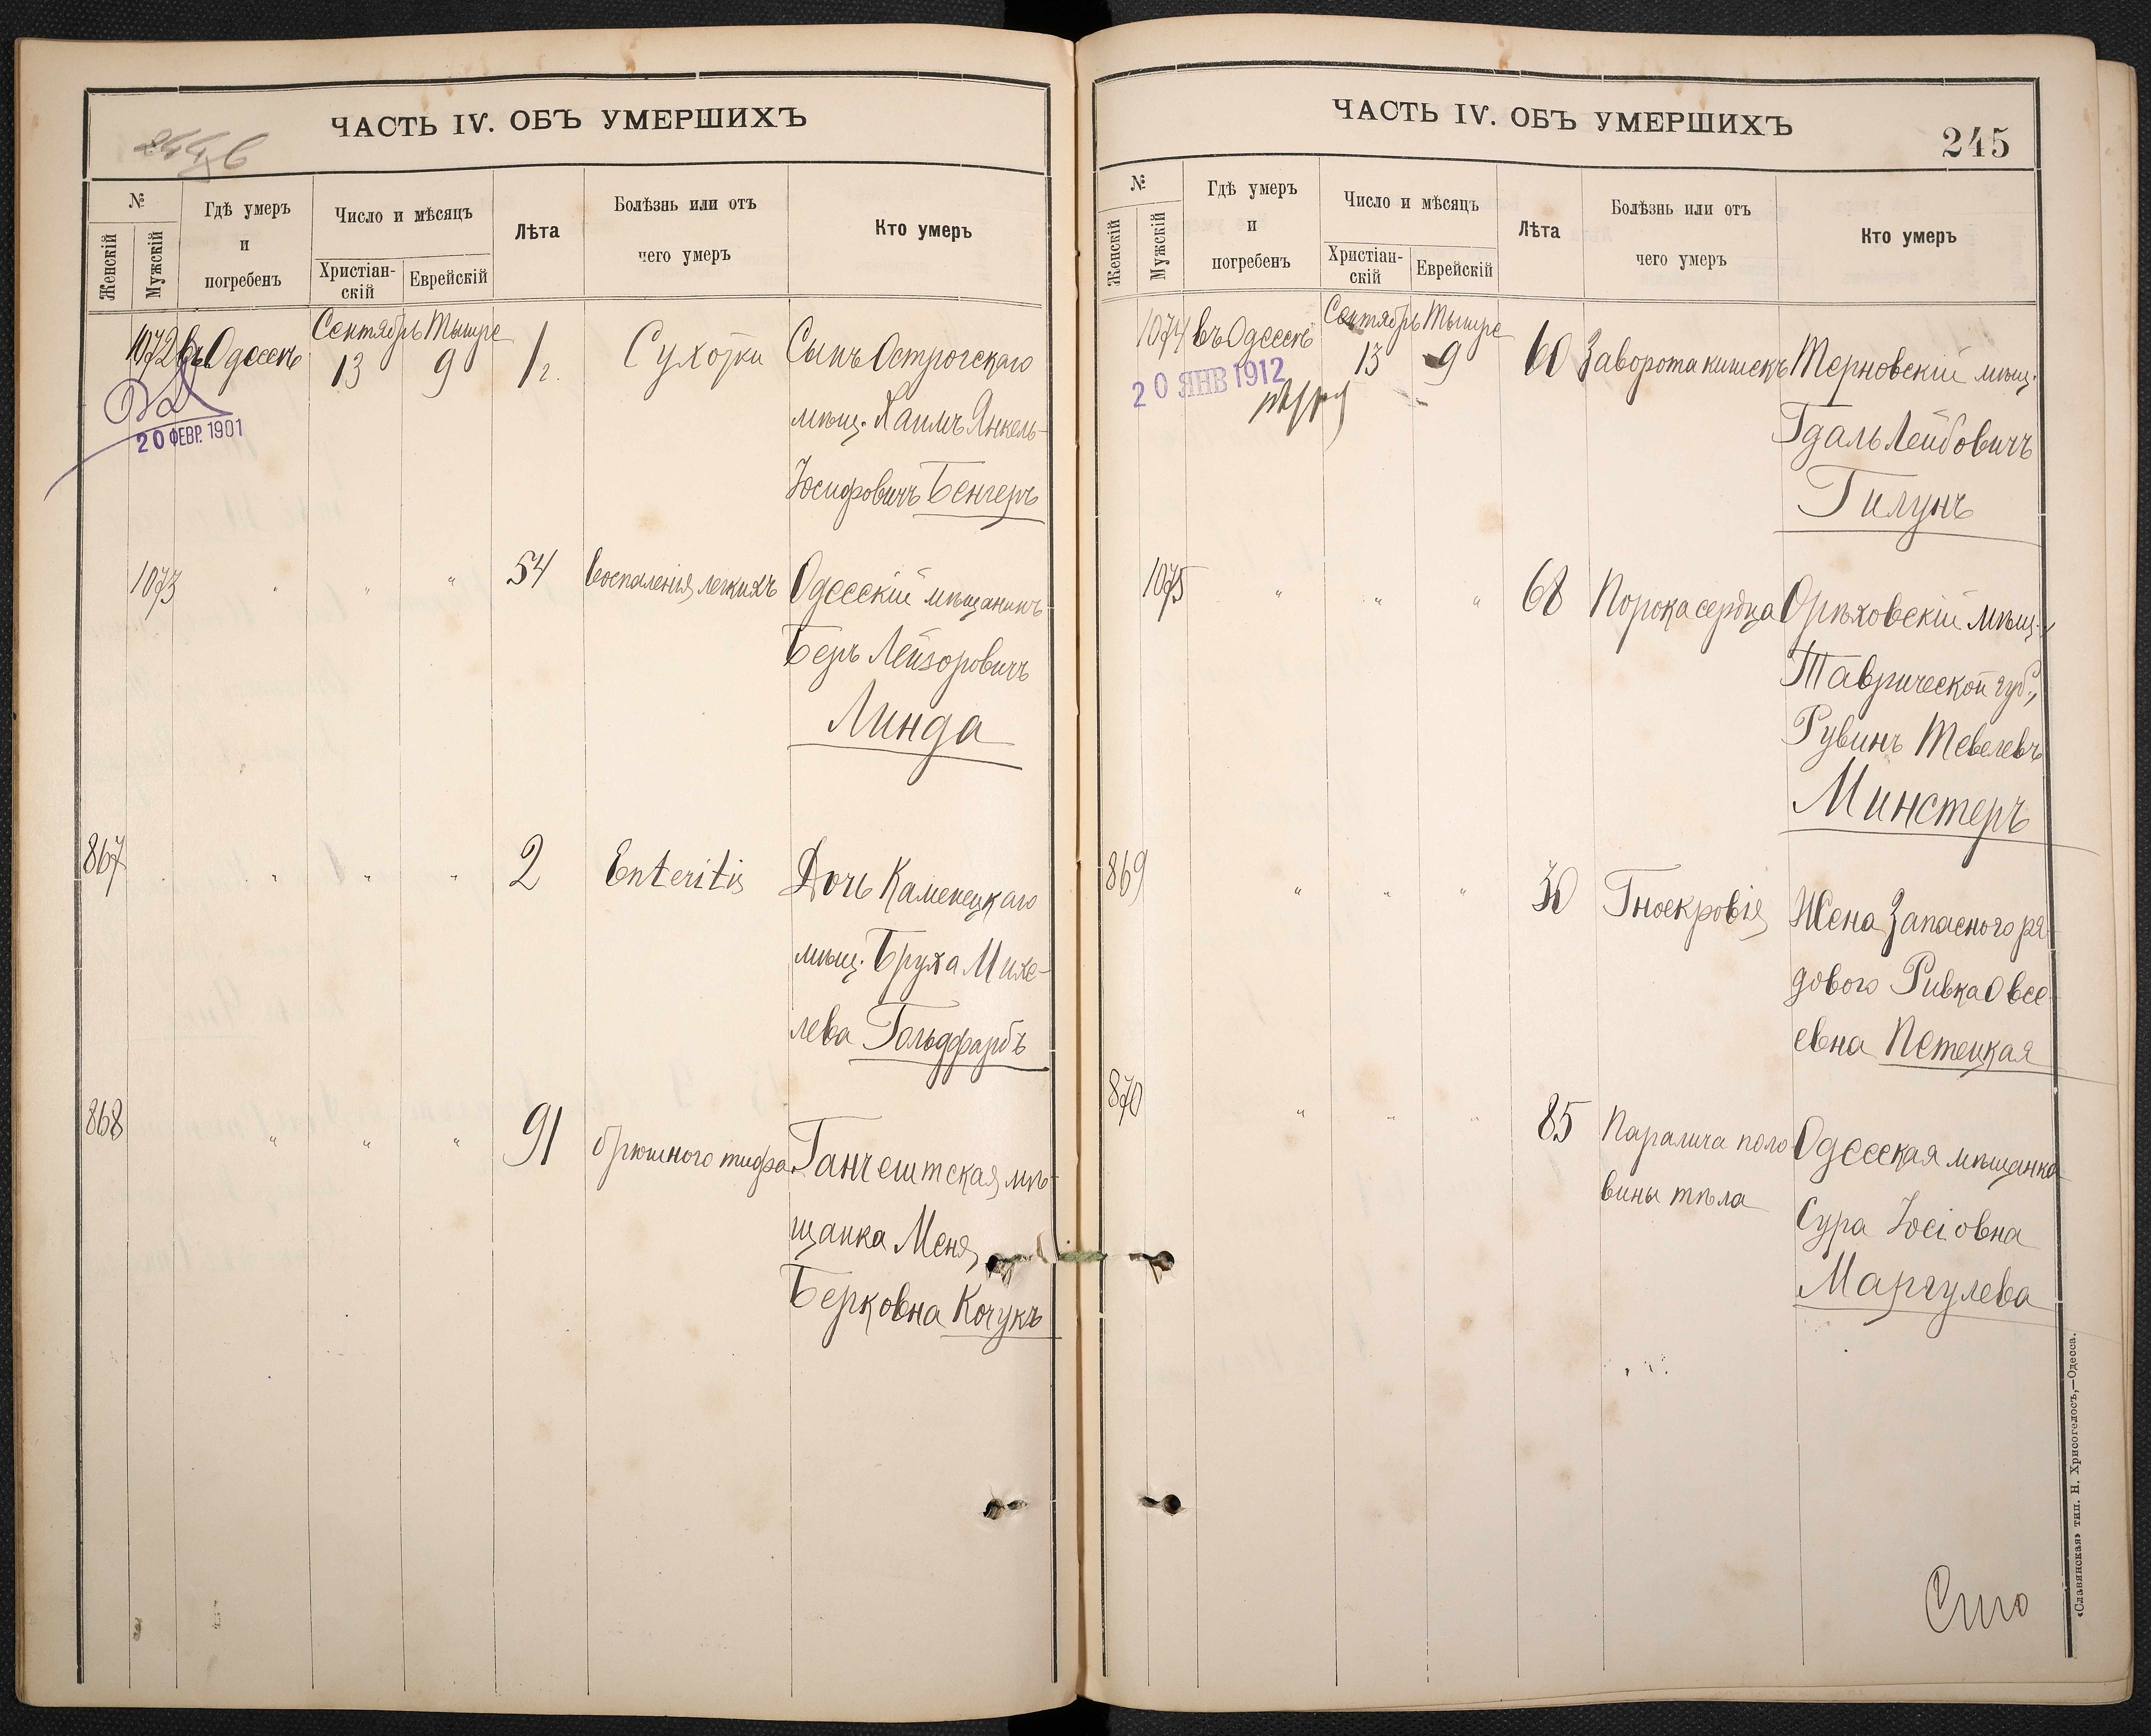 ЧАСТЬ IV. ОБЪ УМЕРШИХЪ
№
Женскій
Мужскій
Гдѣ умеръ
и
погребенъ
Число и мѣсяцъ
Христіан-
скій
Еврейскій
Лѣта
Болѣзнь или отъ
чего умеръ
Кто умеръ
Сентябрь Тышре
1072 въ Одессѣ 13 9 1 г. Сухотки Сынъ Острогскаго
мѣщ. Хаимъ Янкель-
Іосифовичъ Бенгеръ
20 ФЕВР. 1901
1073 " " " 54 Воспаленія легкихъ Одесскій мѣщанинъ
Беръ Лейзоровичъ
Линда
867 " " " 2 Enteritis Дочь Каменецкаго
мѣщ. Бруха Михе-
лева Гольдфарбъ
868 " " " 91 брюшного тифа Ганчештская мѣ-
щанка Меня
Берковна Кочукъ
ЧАСТЬ IV. ОБЪ УМЕРШИХЪ
245
№
Женскій
Мужскій
Гдѣ умеръ
и
погребенъ
Число и мѣсяцъ
Христіан-
скій
Еврейскій
Лѣта
Болѣзнь или отъ
чего умеръ
Кто умеръ
Сентябрь Тышре
1074 въ Одессѣ 13 9 60 Заворота кишекъ Терновскій мѣщ.
20 ЯНВ 1912
Гдаль Лейбовичъ
Гилунъ
1075 " " " 68 Порока сердца Орѣховскій мѣщ.,
Таврической губ.,
Рувинъ Тевелевъ
Минстеръ
869 " " " 30 Гноекровія Жена Запасного ря-
дового Ривка Овсе-
евна Петецкая
870 " " " 85 Паралича поло- Одесская мѣщанка
вины тѣла
Сура Іосіовна
Маргулева
«Славянская» тип. Н. Хрисогелосъ,—Одесса.